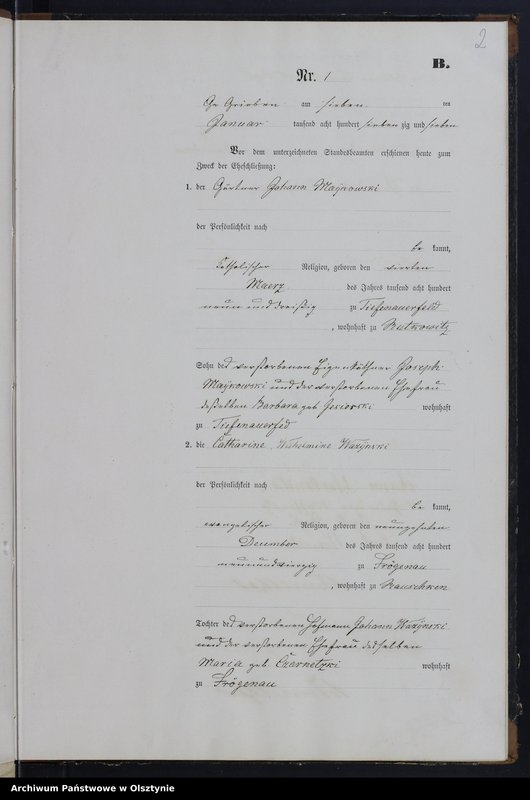 2
B.
Nr. 1
Gr Grieben am sieben ten
Januar tausend acht hundert siebenzig und sieben
Vor dem unterzeichneten Standesbeamten erschienen heute zum
Zweck der Eheschließung:
1. der Gärtner Johann Majnowski
der Persönlichkeit nach
be kannt,
katholischer Religion, geboren den vierten
Maerz des Jahres tausend acht hundert
neun und dreißig zu Tiefenauerfeld
, wohnhaft zu
Sohn des verstorbenen Eigenkäthner Joseph
Majnowski und der verstorbenen Ehefrau
desselben Barbara geb. Jesierski wohnhaft
zu Tiefenauerfed
2. die Catharine Wilhelmine Wazynski
der Persönlichkeit nach
be kannt,
evangelischer Religion, geboren den neunzehnten
December des Jahres tausend acht hundert
neunundvierzig zu Frögenau
, wohnhaft zu Rauschken
Tochter des verstorbenen Hofmann Johann Wazynski
und der verstorbenen Ehefrau desselben
Maria geb. Czernetzki wohnhaft
zu Frögenau
Archiwum Państwowe w Olsztynie